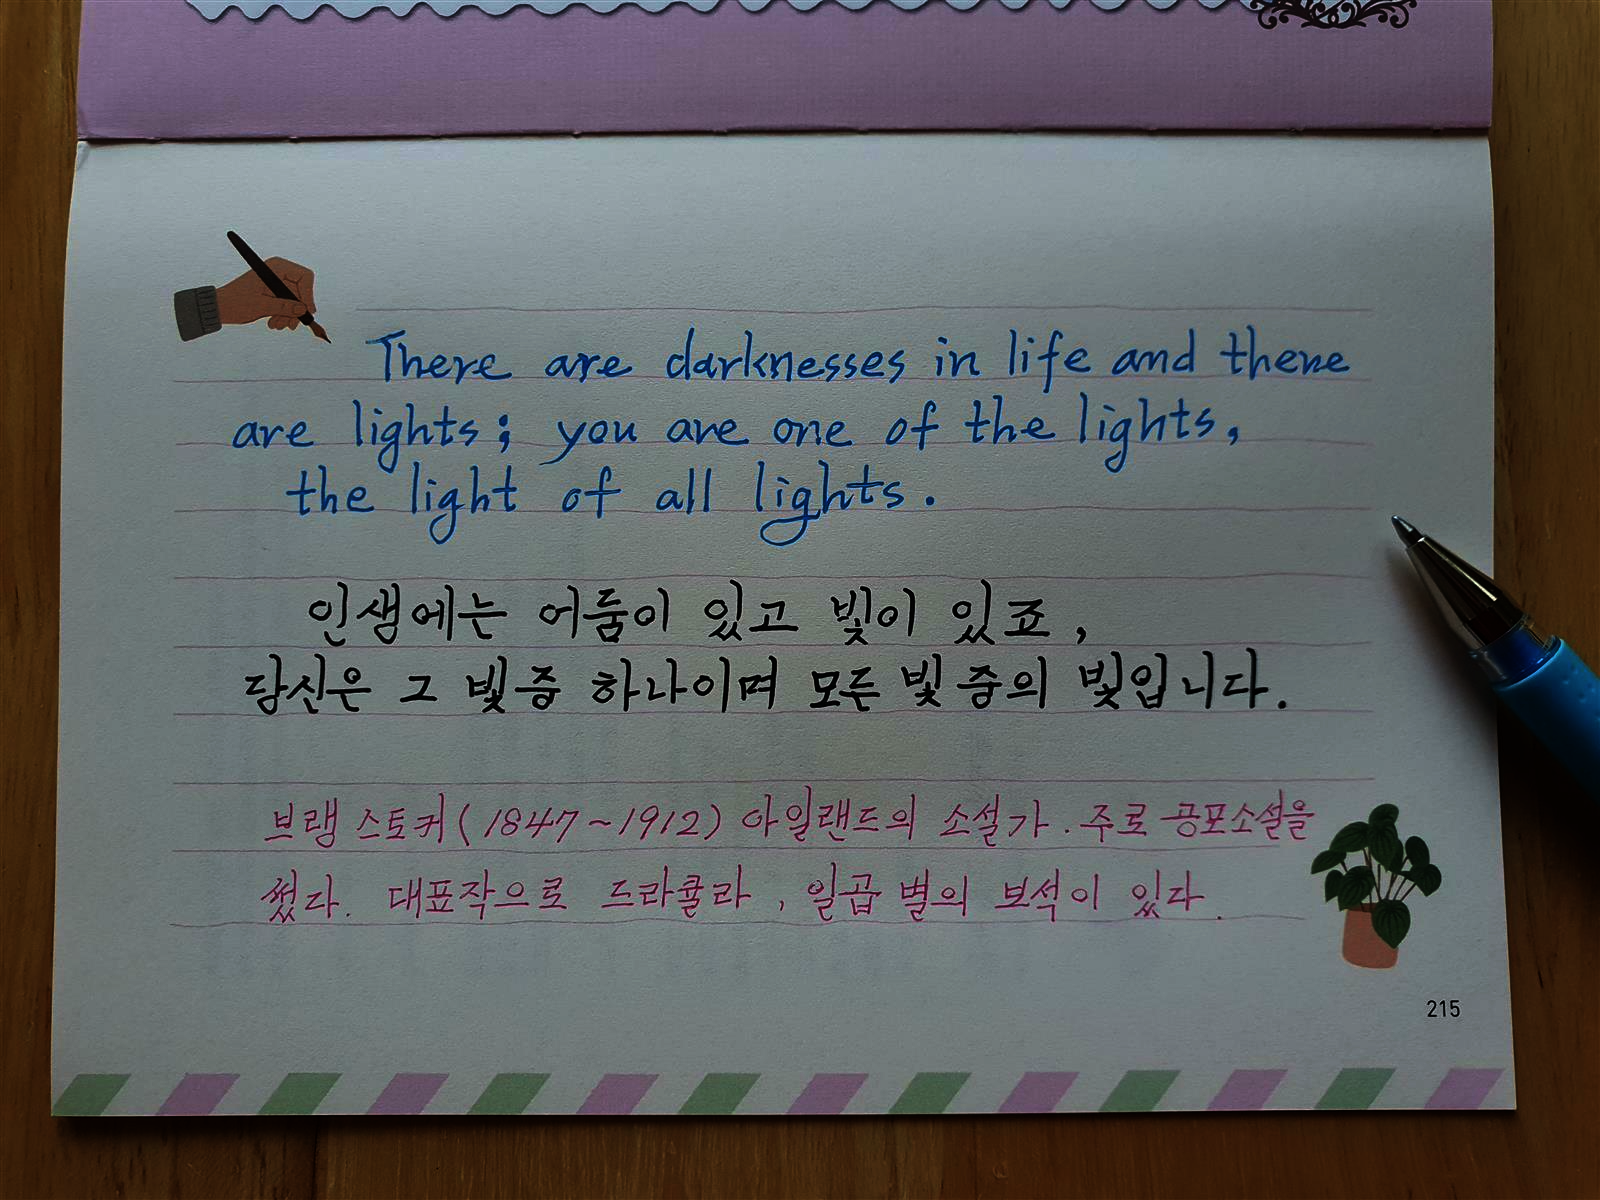 There are darknesses in life and there
are lights; you are one of the lights,
the light of all lights.
인생에는 어둠이 있고 빛이 있죠,
당신은 그 빛 중 하나이며 모든 빛 중의 빛입니다.
브램 스토커(1847~1912) 아일랜드의 소설가. 주로 공포소설을
썼다. 대표작으로 드라큘라, 일곱 별의 보석이 있다.
215